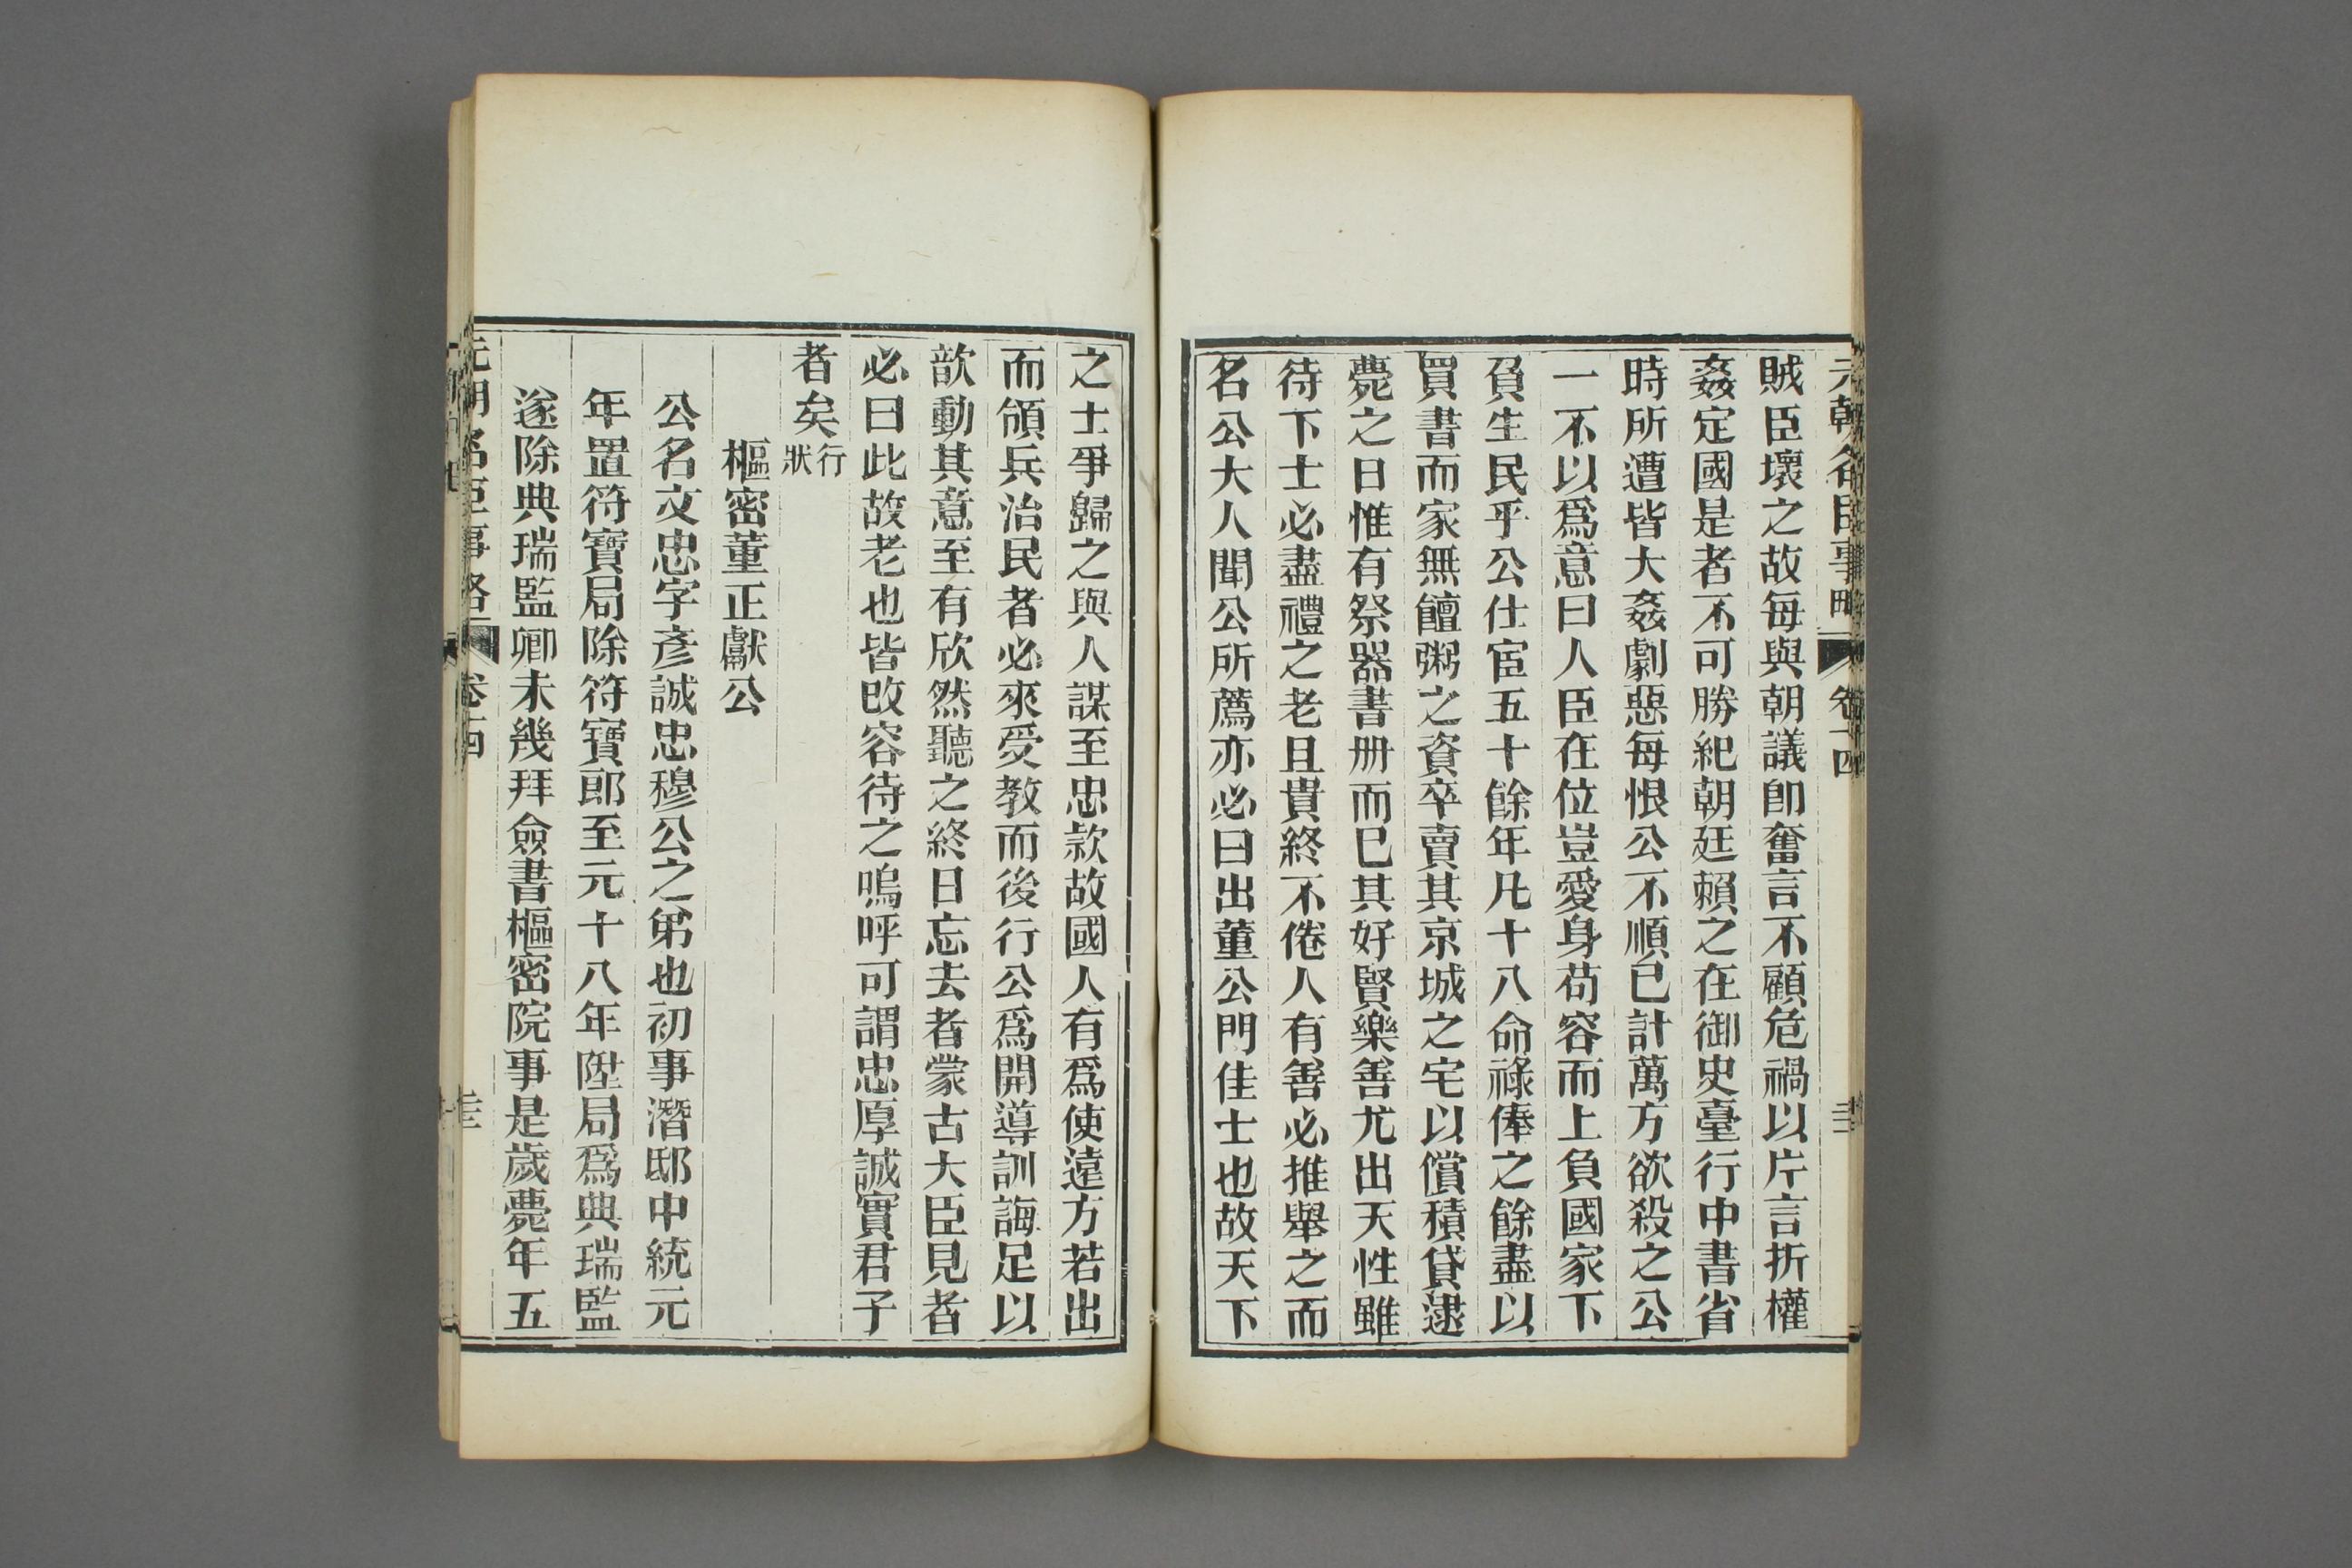 元朝名臣事略 卷十四
賊臣壞之故每與朝議卽奮言不顧危禍以片言折權
姦定國是者不可勝紀朝廷賴之在御史臺行中書省
時所遭皆大姦劇惡每恨公不順己計萬方欲殺之公
一不以爲意曰人臣在位豈愛身苟容而上負國家下
負生民乎公仕宦五十餘年凡十八命祿俸之餘盡以
買書而家無饘粥之資卒賣其京城之宅以償積貸逮
薨之日惟有祭器書册而已其好賢樂善尤出天性雖
待下士必盡禮之老且貴終不倦人有善必推舉之而
名公大人聞公所薦亦必曰出董公門佳士也故天下
之士爭歸之與人謀至忠款故國人有爲使遠方若出
而領兵治民者必來受教而後行公爲開導訓誨足以
歆動其意至有欣然聽之終日忘去者蒙古大臣見者
必曰此故老也皆改容待之嗚呼可謂忠厚誠實君子
者矣行狀
樞密董正獻公
公名文忠字彥誠忠穆公之弟也初事潛邸中統元
年置符寶局除符寶郎至元十八年陞局爲典瑞監
遂除典瑞監卿未幾拜僉書樞密院事是歲薨年五
元朝名臣事略 卷十四